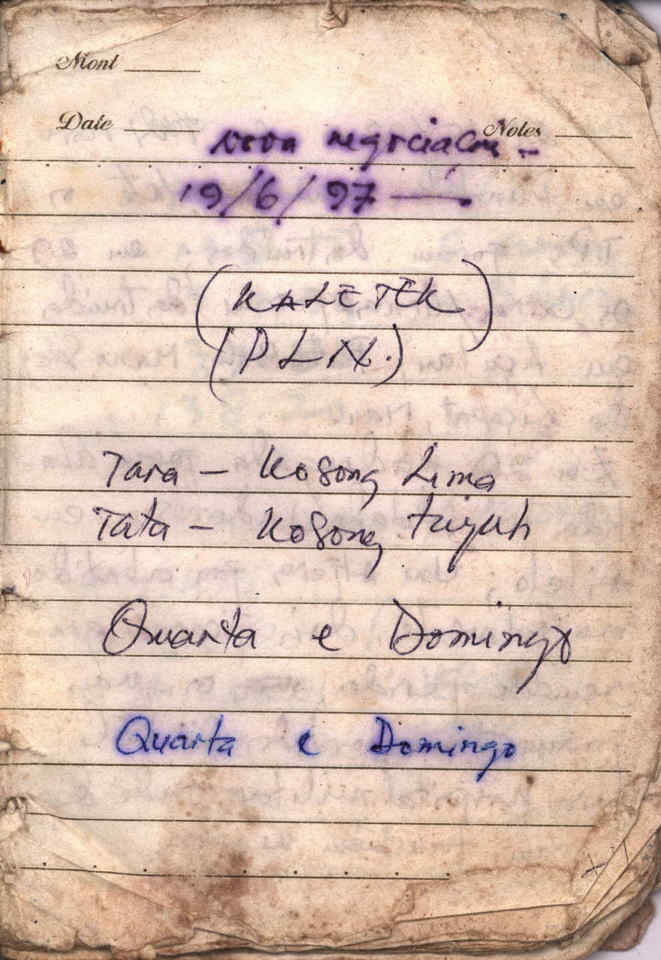 Mont
Date Notes
nova negociação
19/6/97
(KALETEK)
(PLN.)
Tara - Kosong Lima
Tata - Kosong tujuh
Quarta e Domingo
Quarta e Domingo